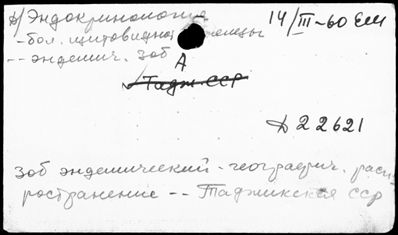 D/ Эндокринология 14/III-60 ЕМ
-бол. щитовидной железы
-- эндемич. зоб
А
Тадж. ССР
Д 22621
Зоб эндемический - географич. рас-
ространение -- Таджикская ССР